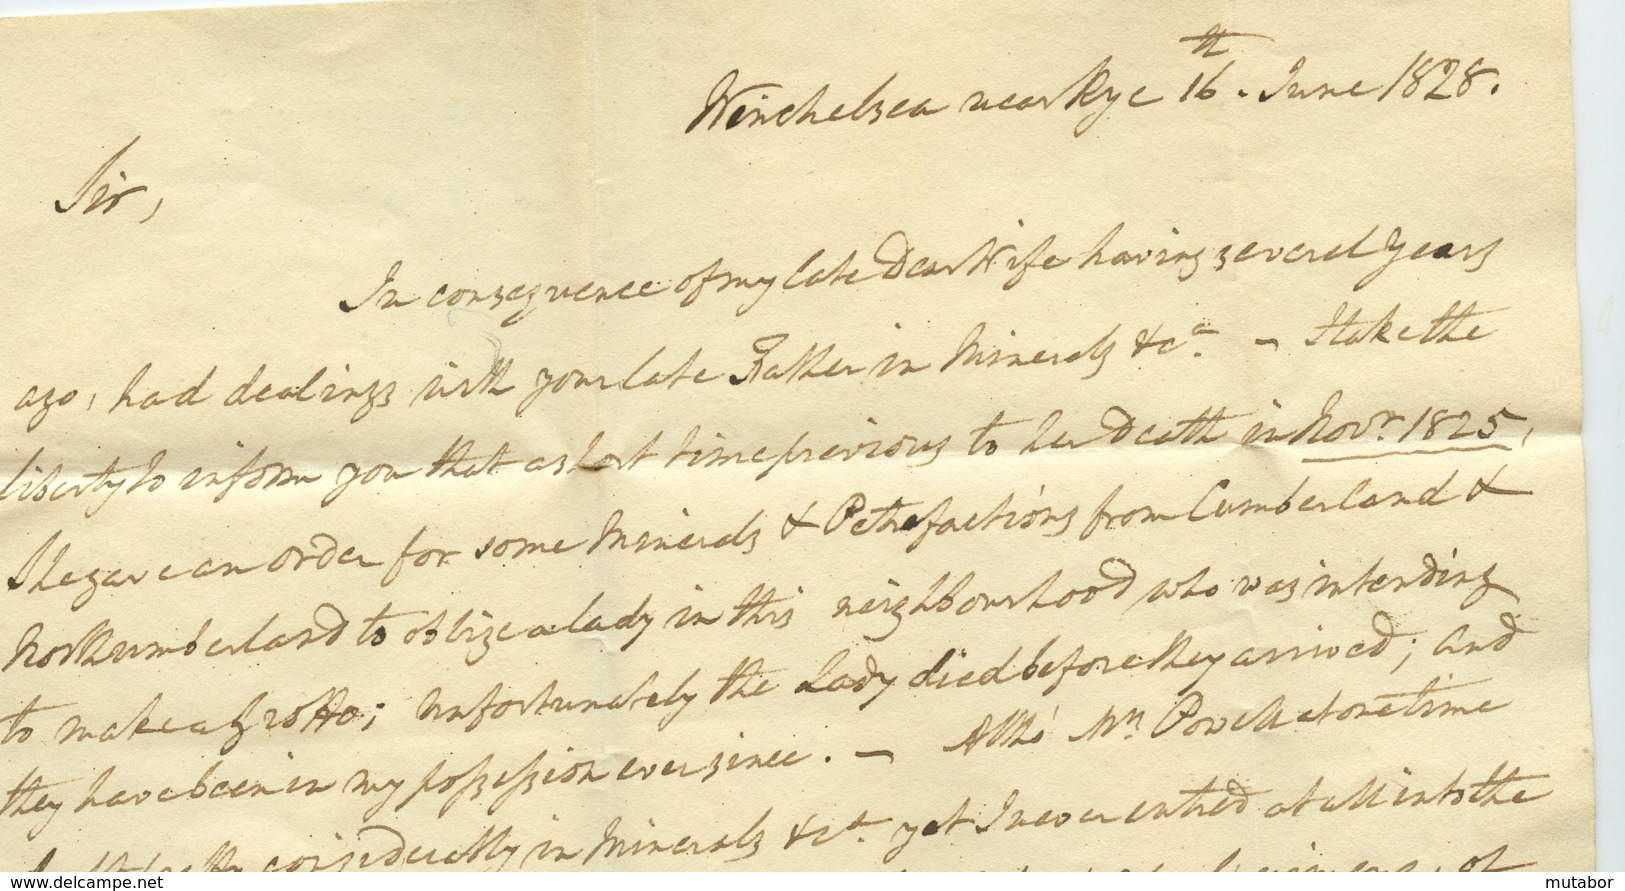 Winchelsea near Rye 16th. June 1828.
Sir,
In consequence of my late Dear Wife having several Years
ago, had dealings with your late Father in Minerals &ca. – I take the
liberty to inform you that a short time previous to her Death in Novr. 1825,
She gave an order for some Minerals & Pethefactions from Cumberland &
Northumberland to oblige a lady in this neighbourhood who was intending
to make a Grotto; unfortunately the Lady died before they arrived; and
they have been in my possession ever since. – Altho' Mrs. Powell at one time
pretty considerably in Minerals &ca. yet I never entred at all into the
of
delcampe.net
mutabor